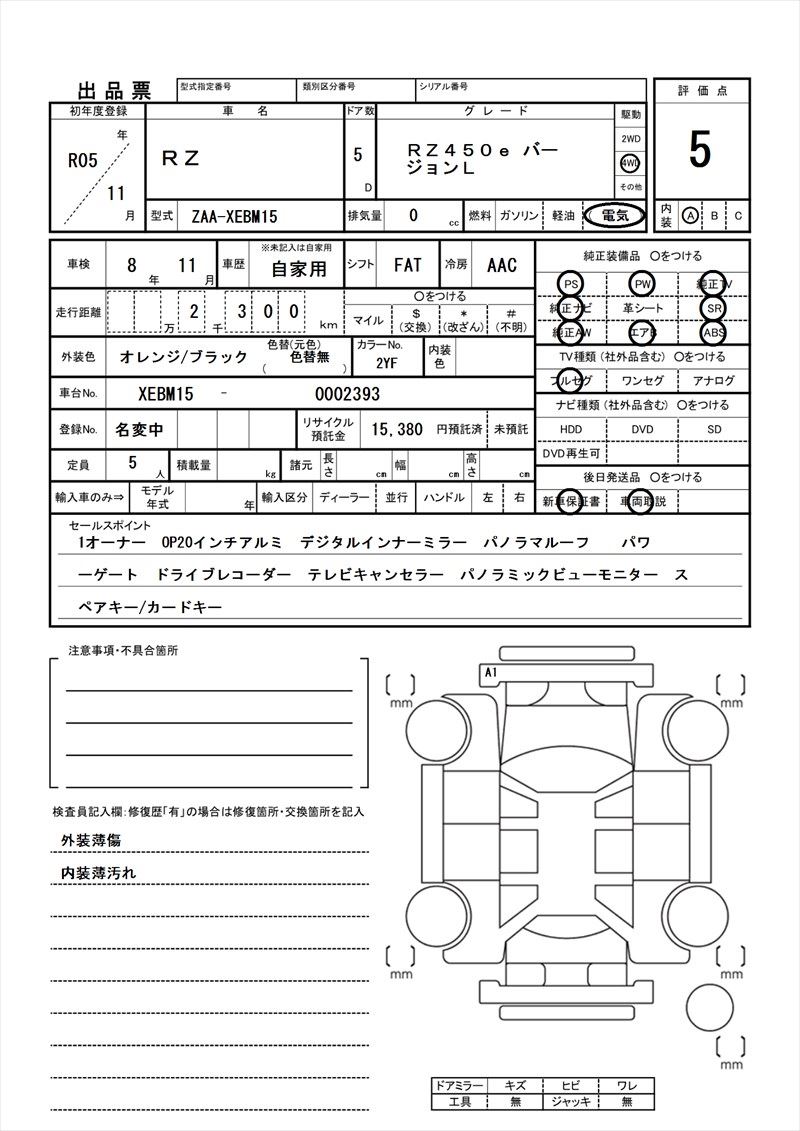 出品票 型式指定番号 類別区分番号 シリアル番号 評価点
初年度登録 車名 ドア数 グレード 駆動
R05 年 11 月 RZ 5 D RZ450e バー
ジョンL 2WD 4WD その他 5
型式 ZAA-XEBM15 排気量 0 cc 燃料 ガソリン 軽油 電気 内装 A B C
車検 8 年 11 月 車歴 ※未記入は自家用 自家用 シフト FAT 冷房 AAC
走行距離 2 万 3 千 0 0 km 〇をつける
マイル $(交換) *(改ざん) #(不明)
外装色 オレンジ/ブラック 色替(元色) ( 色替無 ) カラーNo. 2YF 内装色
車台No. XEBM15 - 0002393
登録No. 名変中 リサイクル預託金 15,380 円預託済 未預託
定員 5 人 積載量 kg 諸元 長さ cm 幅 cm 高さ cm
輸入車のみ⇒ モデル年式 年 輸入区分 ディーラー 並行 ハンドル 左 右
純正装備品 〇をつける
PS PW 純正TV
純正ナビ 革シート SR
純正AW エアB ABS
TV種類(社外品含む) 〇をつける
フルセグ ワンセグ アナログ
ナビ種類(社外品含む) 〇をつける
HDD DVD SD
DVD再生可
後日発送品 〇をつける
新車保証書 車両取説
セールスポイント
1オーナー OP20インチアルミ デジタルインナーミラー パノラマルーフ パワ
ーゲート ドライブレコーダー テレビキャンセラー パノラミックビューモニター ス
ペアキー/カードキー
注意事項・不具合箇所
検査員記入欄:修復歴「有」の場合は修復箇所・交換箇所を記入
外装薄傷
内装薄汚れ
A1
mm mm
mm mm
mm
ドアミラー キズ ヒビ ワレ
工具 無 ジャッキ 無